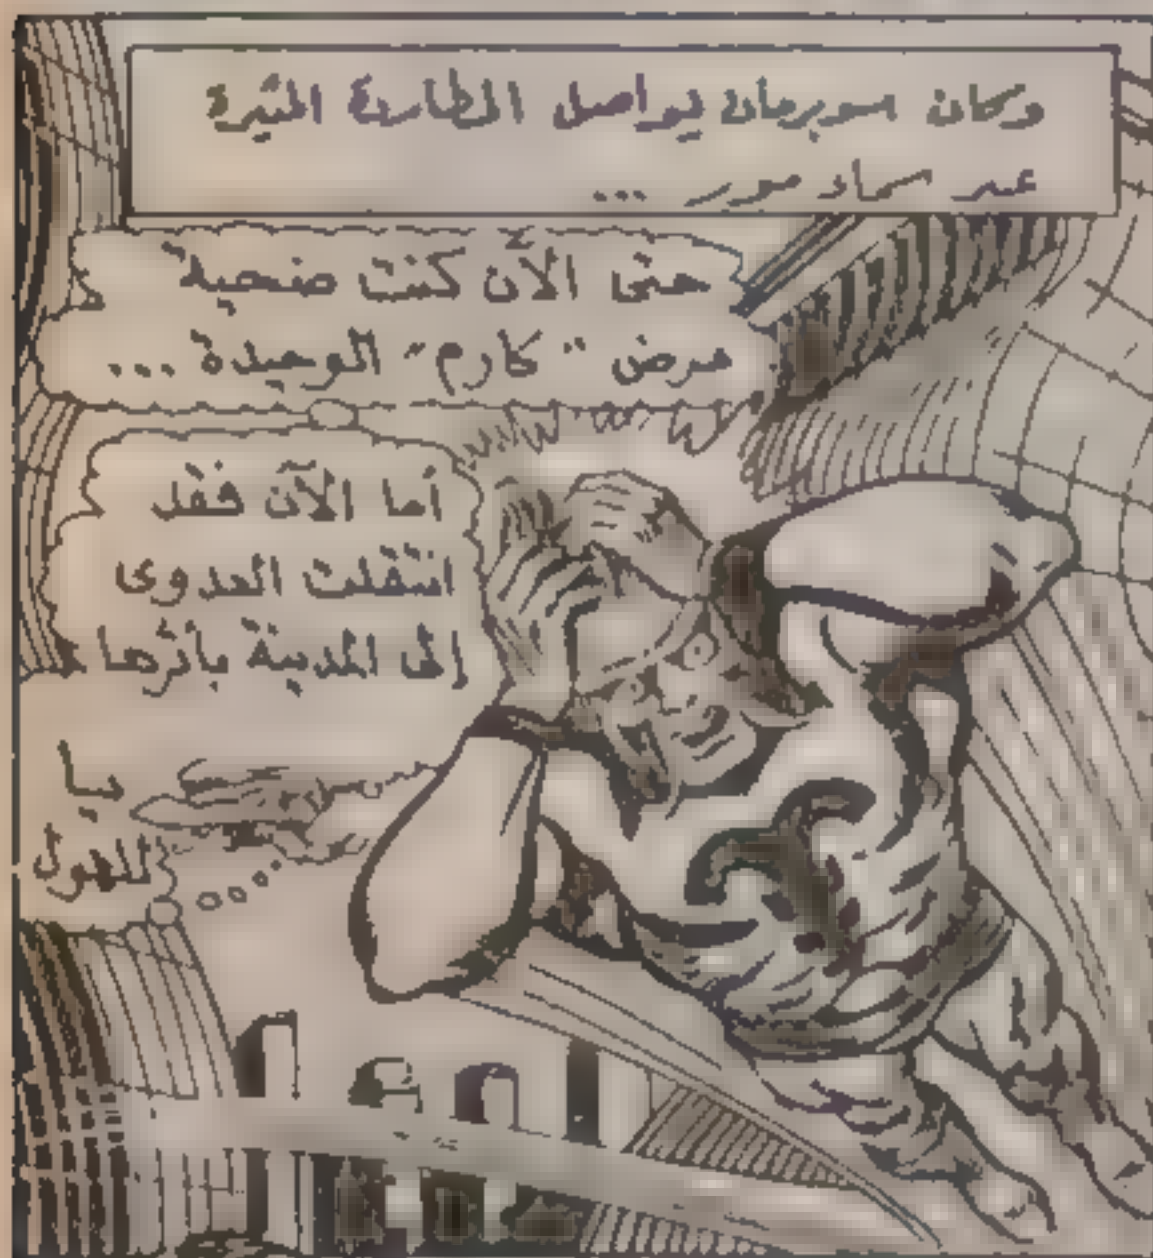 وكان سوبرمان يواصل المطاردة المثيرة
عبر سماء مور ...
حتى الآن كنت ضحية
مرض "كارم" الوحيدة ...
أما الآن فقد
انتقلت العدوى
إلى المدينة بأثرها
فيا
للهول